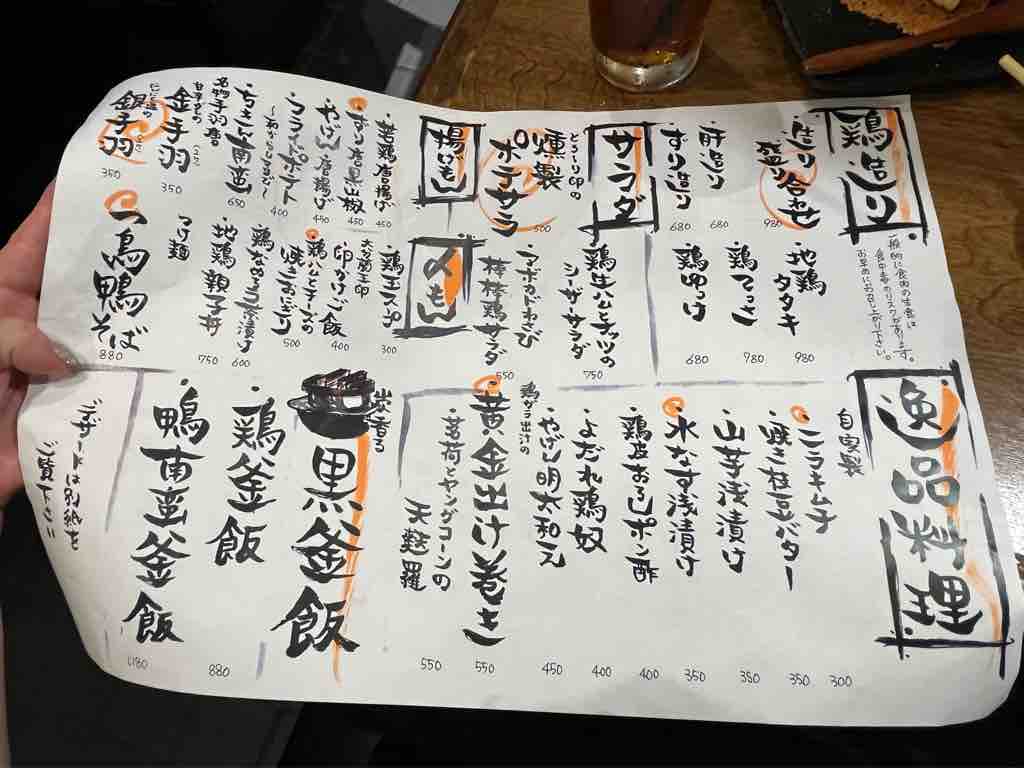 鶏造り
造り合せ
盛り
980
肝造り
680
ずり造り
680
一般的に食肉の生食は
食中毒のリスクがあります。
お早めにお召し上がり下さい。
・地鶏
タタキ
980
・鶏てっさ
780
・鶏ゆっけ
680
サラダ
とりーり印の
燻製
ポテサラ
500
・鶏生ハムとナッツの
シーザーサラダ
750
・アボカドわさび
棒棒鶏サラダ
550
揚げもん
・若鶏唐揚げ
450
・ずり唐黒山椒
450
・やげん唐揚げ
450
・フライドポテト
〜ねぎらしまよ〜
400
・ちきん南蛮
650
名物手羽唐
甘辛の
金手羽
350
にんにく塩の
銀手羽
350
〆もん
・鶏スープ
300
大分蘭王卵
卵かけご飯
400
・鶏ハムとチーズの
焼きおにぎり
500
・鶏だし茶漬け
600
・地鶏親子丼
750
つけ麺
鳥鴨そば
880
逸品料理
自家製
・ニラキムチ
300
・焼き枝豆バター
350
・山芋浅漬け
350
・水なす浅漬け
350
・鶏皮おろしポン酢
400
・よだれ鶏奴
400
・やげん明太和え
450
鶏ガラ出汁の
・黄金出汁巻き
550
・茗荷とヤングコーンの
天麩羅
550
炭香る
黒釜飯
・鶏釜飯
880
・鴨南蛮釜飯
1180
デザートは別紙を
ご覧下さい!!